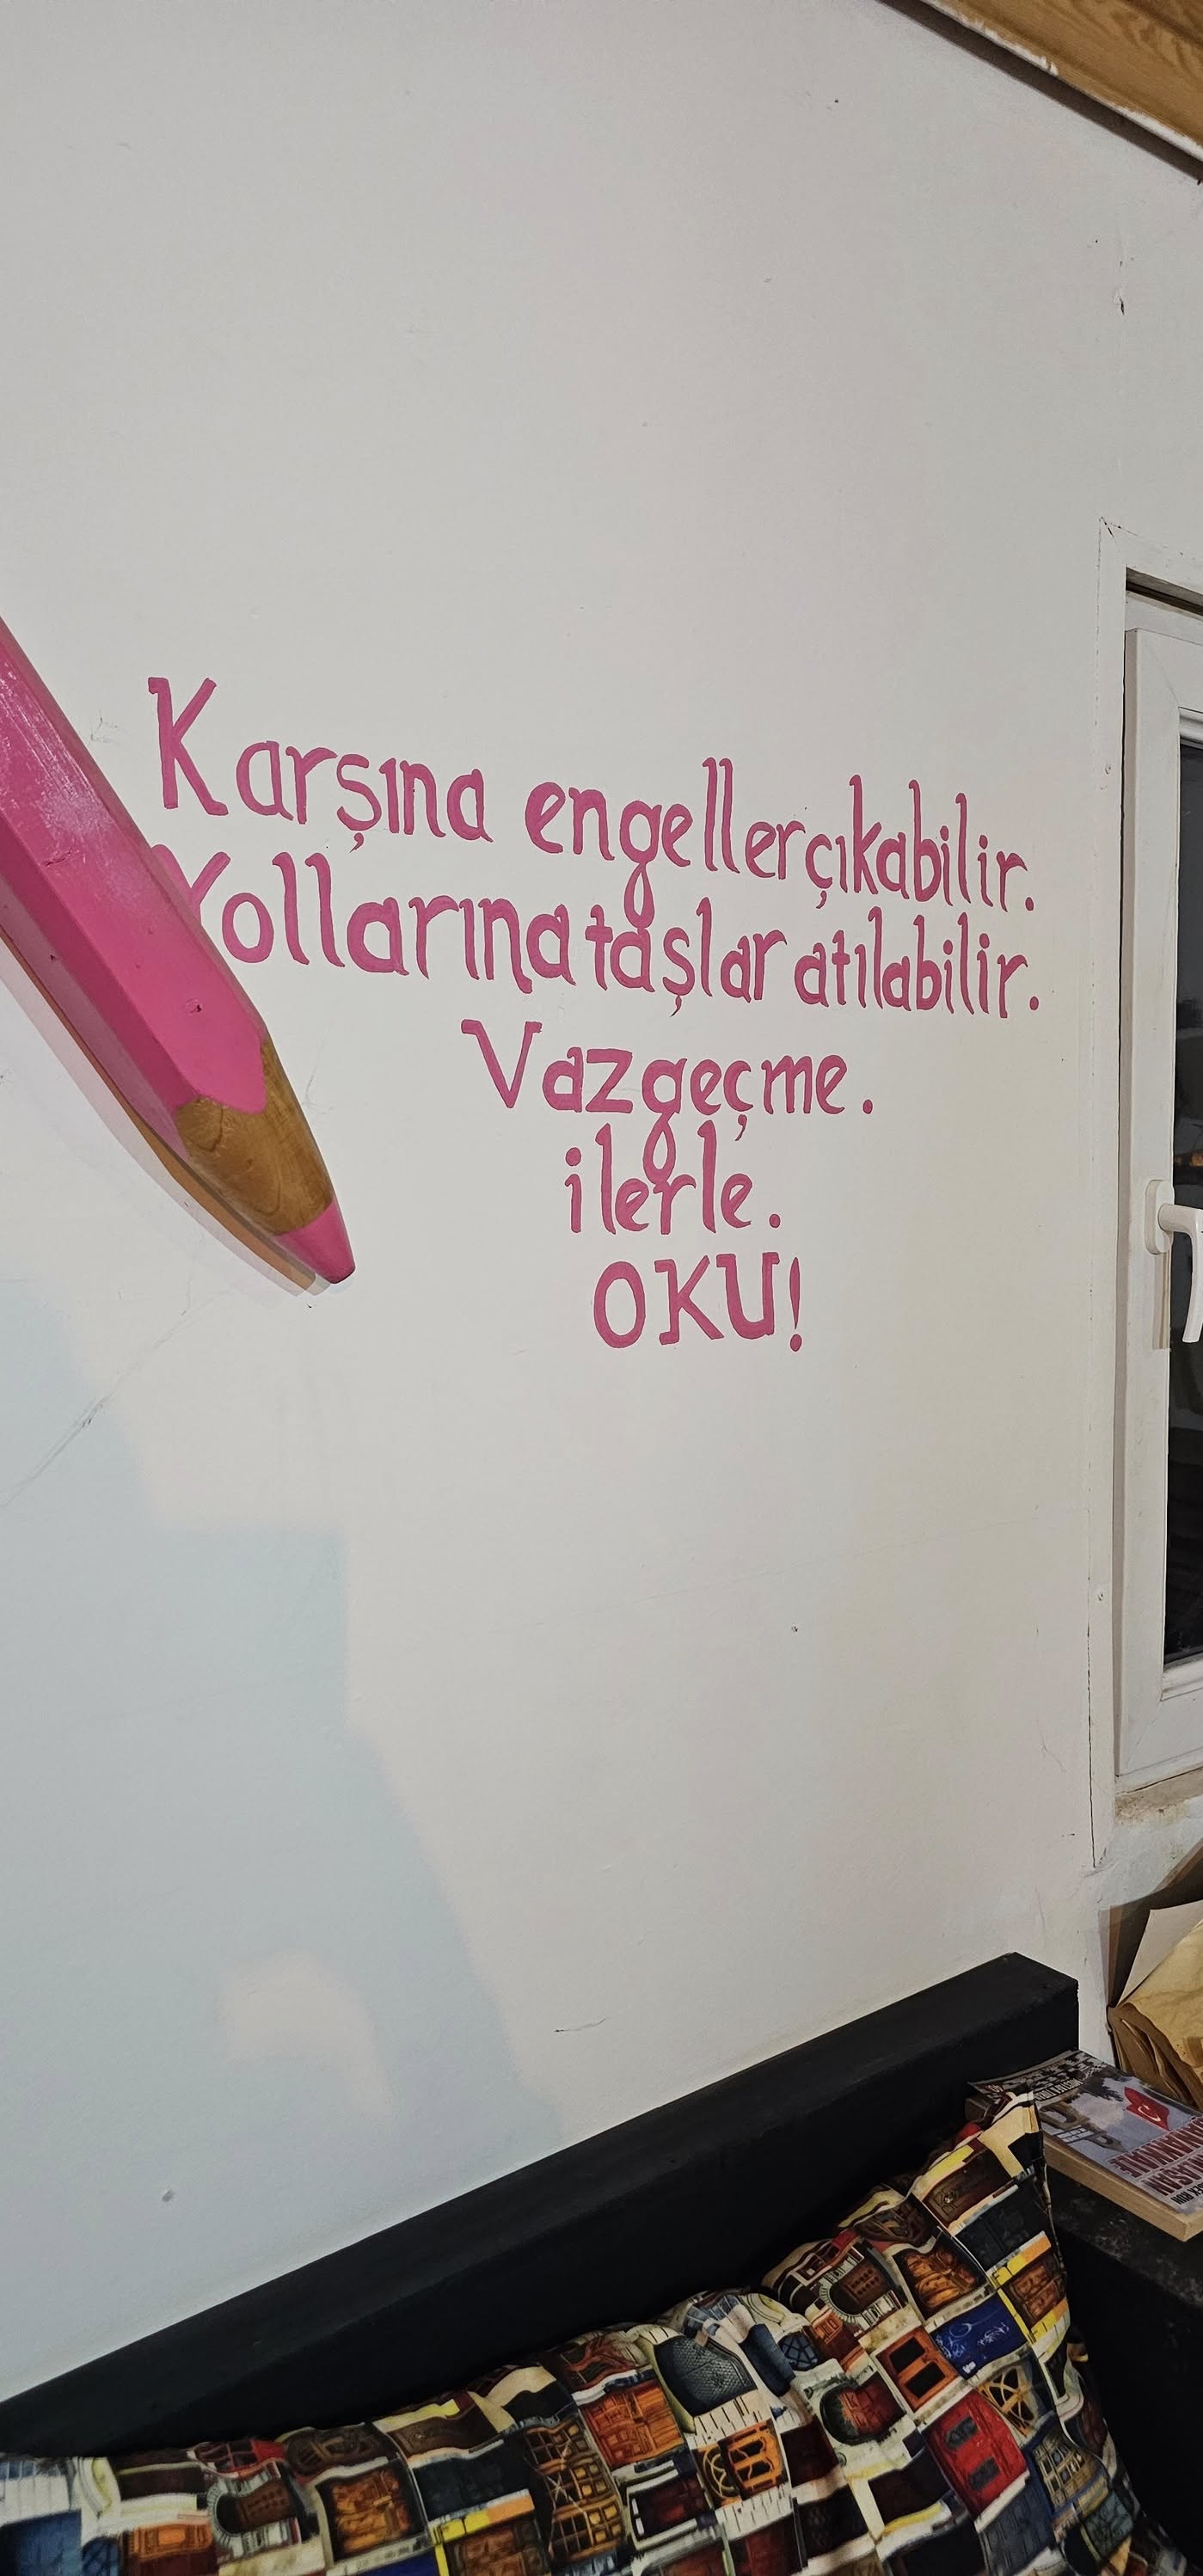 Karşına engeller çıkabilir.
Yollarına taşlar atılabilir.
Vazgeçme.
ilerle.
OKU!